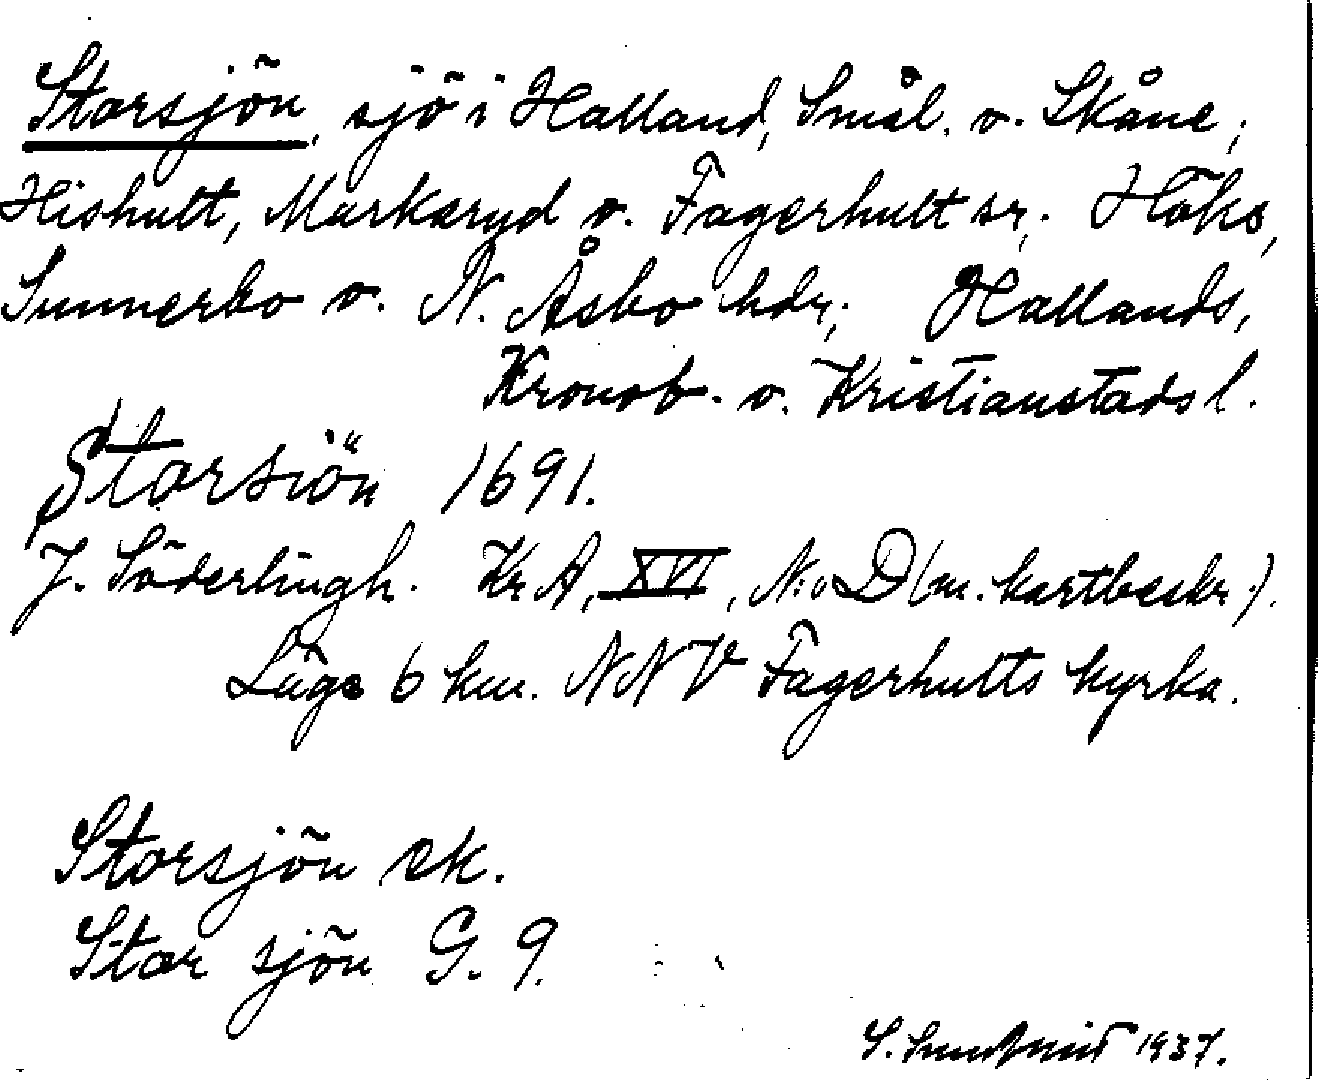 Storsjön, sjö i Halland, Smål. o. Skåne;
Hishult, Markaryd o. Fagerhult sr; Höks,
Sunnerbo o. N. Åsbo hdr; Hallands,
Kronob. o. Kristianstads l.
Storsiön 1691.
J. Söderlingh. Kr A, XVI, N:o D (m. kartbeskr.).
Läge 6 km. NNV Fagerhults kyrka.
Storsjön ek.
Stor sjön G. 9.
S. 1937.